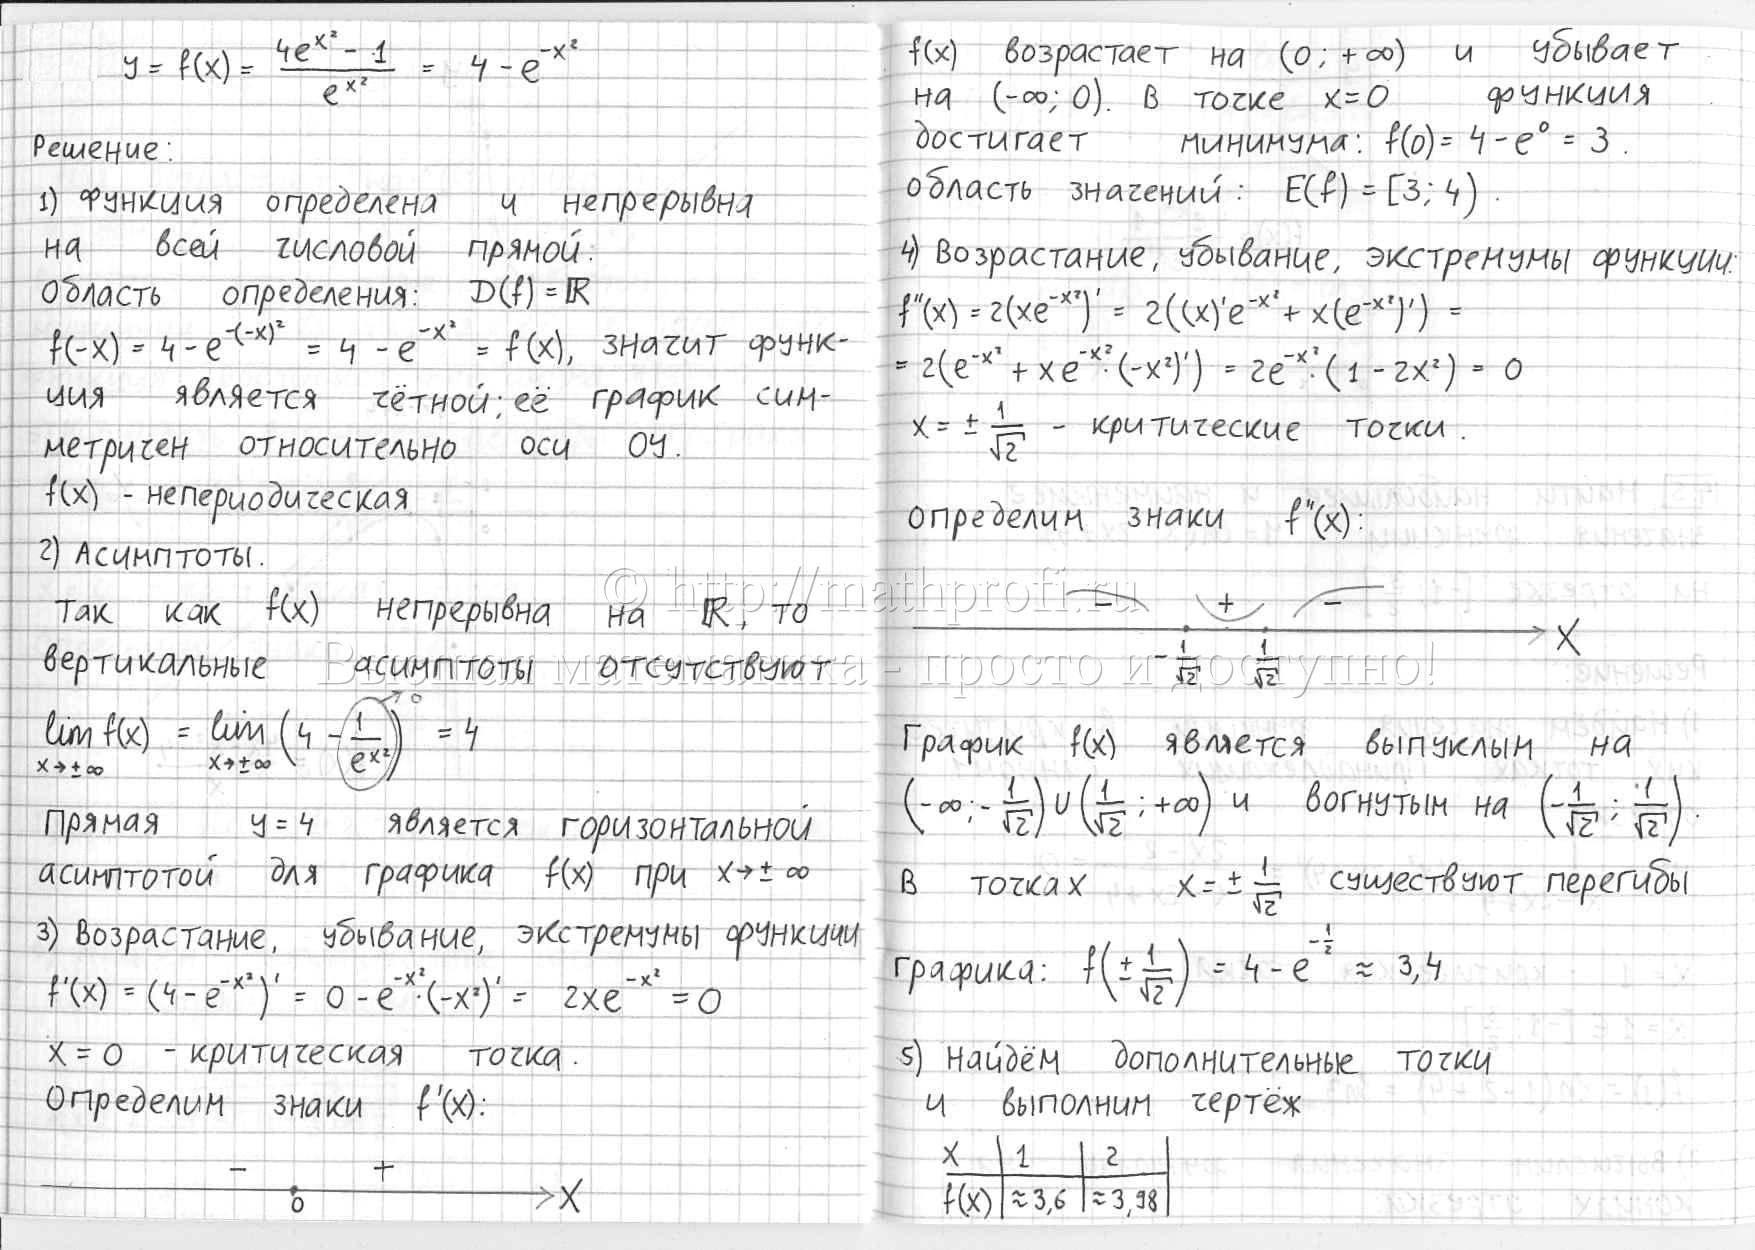 y = f(x) = (4e^{x²} - 1)/e^{x²} = 4 - e^{-x²}
Решение:
1) Функция определена и непрерывна
на всей числовой прямой.
Область определения: D(f) = ℝ
f(-x) = 4 - e^{-(-x)²} = 4 - e^{-x²} = f(x), значит функ-
ция является чётной; её график сим-
метричен относительно оси OY.
f(x) - непериодическая
2) Асимптоты.
Так как f(x) непрерывна на ℝ, то
вертикальные асимптоты отсутствуют
lim_{x→±∞} f(x) = lim_{x→±∞} (4 - 1/e^{x²})^{→0} = 4
Прямая y = 4 является горизонтальной
асимптотой для графика f(x) при x→±∞
3) Возрастание, убывание, экстремумы функции
f'(x) = (4 - e^{-x²})' = 0 - e^{-x²}·(-x²)' = 2xe^{-x²} = 0
x = 0 - критическая точка.
Определим знаки f'(x):
- +
0 X
f(x) возрастает на (0; +∞) и убывает
на (-∞; 0). В точке x=0 функция
достигает минимума: f(0) = 4 - e⁰ = 3.
Область значений: E(f) = [3; 4).
4) Возрастание, убывание, экстремумы функции:
f''(x) = 2(xe^{-x²})' = 2((x)'e^{-x²} + x(e^{-x²})') =
= 2(e^{-x²} + xe^{-x²}·(-x²)') = 2e^{-x²}·(1 - 2x²) = 0
x = ± 1/√2 - критические точки.
Определим знаки f''(x):
- + -
-1/√2 1/√2 X
График f(x) является выпуклым на
(-∞; -1/√2) ∪ (1/√2; +∞) и вогнутым на (-1/√2; 1/√2).
В точках x = ± 1/√2 существуют перегибы
графика: f(± 1/√2) = 4 - e^{-1/2} ≈ 3,4
5) Найдём дополнительные точки
и выполним чертёж
x | 1 | 2 |
f(x) | ≈3,6 | ≈3,98 |
© http://mathprofi.ru
Высшая математика - просто и доступно!